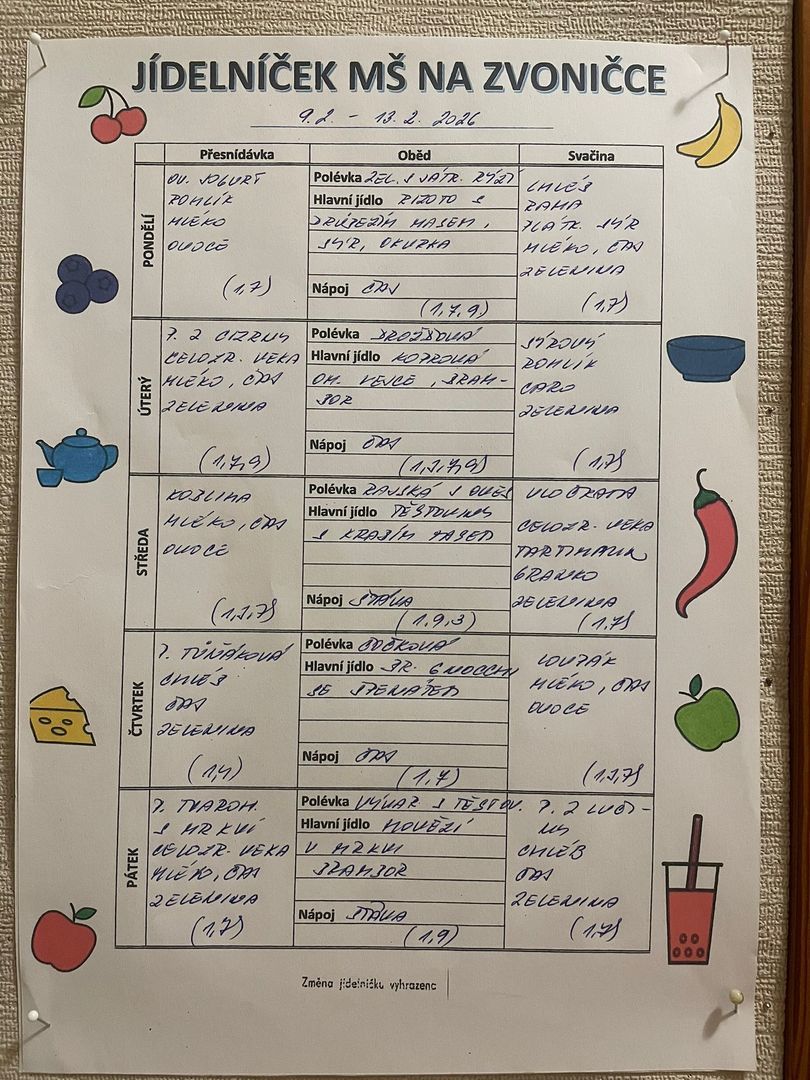 JÍDELNÍČEK MŠ NA ZVONIČCE
9.2. - 13.2. 2026
Přesnídávka Oběd Svačina
PONDĚLÍ
OV. JOGURT
ROHLÍK
MLÉKO
OVOCE
(1,7)
Polévka ZEL. S JÁTR. RÝŽÍ
Hlavní jídlo RIZOTO S
DRŮBEŽÍM MASEM,
SÝR, OKURKA
Nápoj ČAJ
(1,7,9)
CHLÉB
RAMA
PLÁTK. SÝR
MLÉKO, ČAJ
ZELENINA
(1,7)
ÚTERÝ
P. Z CIZRNY
CELOZR. VEKA
MLÉKO, ČAJ
ZELENINA
(1,7,9)
Polévka DROŽĎOVÁ
Hlavní jídlo KOPROVÁ
OM. VEJCE, BRAM-
BOR
Nápoj ČAJ
(1,3,7,9)
SÝROVÝ
ROHLÍK
CARO
ZELENINA
(1,7)
STŘEDA
KOBLIHA
MLÉKO, ČAJ
OVOCE
(1,3,7)
Polévka RAJSKÁ S OVES
Hlavní jídlo TĚSTOVINY
S KRABÍM MASEM
Nápoj ŠŤÁVA
(1,9,3)
VLOČKAMA
CELOZR. VEKA
GRANKO
ZELENINA
(1,7)
ČTVRTEK
P. TUŇÁKOVÁ
CHLÉB
ČAJ
ZELENINA
(1,4)
Polévka ČOČKOVÁ
Hlavní jídlo BR. GNOCCHI
SE ŠPENÁTEM
Nápoj ČAJ
(1,7)
LOUPÁK
MLÉKO, ČAJ
OVOCE
(1,3,7)
PÁTEK
P. TVAROH.
S MRKVÍ
CELOZR. VEKA
MLÉKO, ČAJ
ZELENINA
(1,7)
Polévka VÝVAR S TĚSTOV.
Hlavní jídlo HOVĚZÍ
V MRKVI
BRAMBOR
Nápoj ŠŤÁVA
(1,9)
P. Z LUČI-
NY
CHLÉB
ČAJ
ZELENINA
(1,7)
Změna jídelníčku vyhrazena